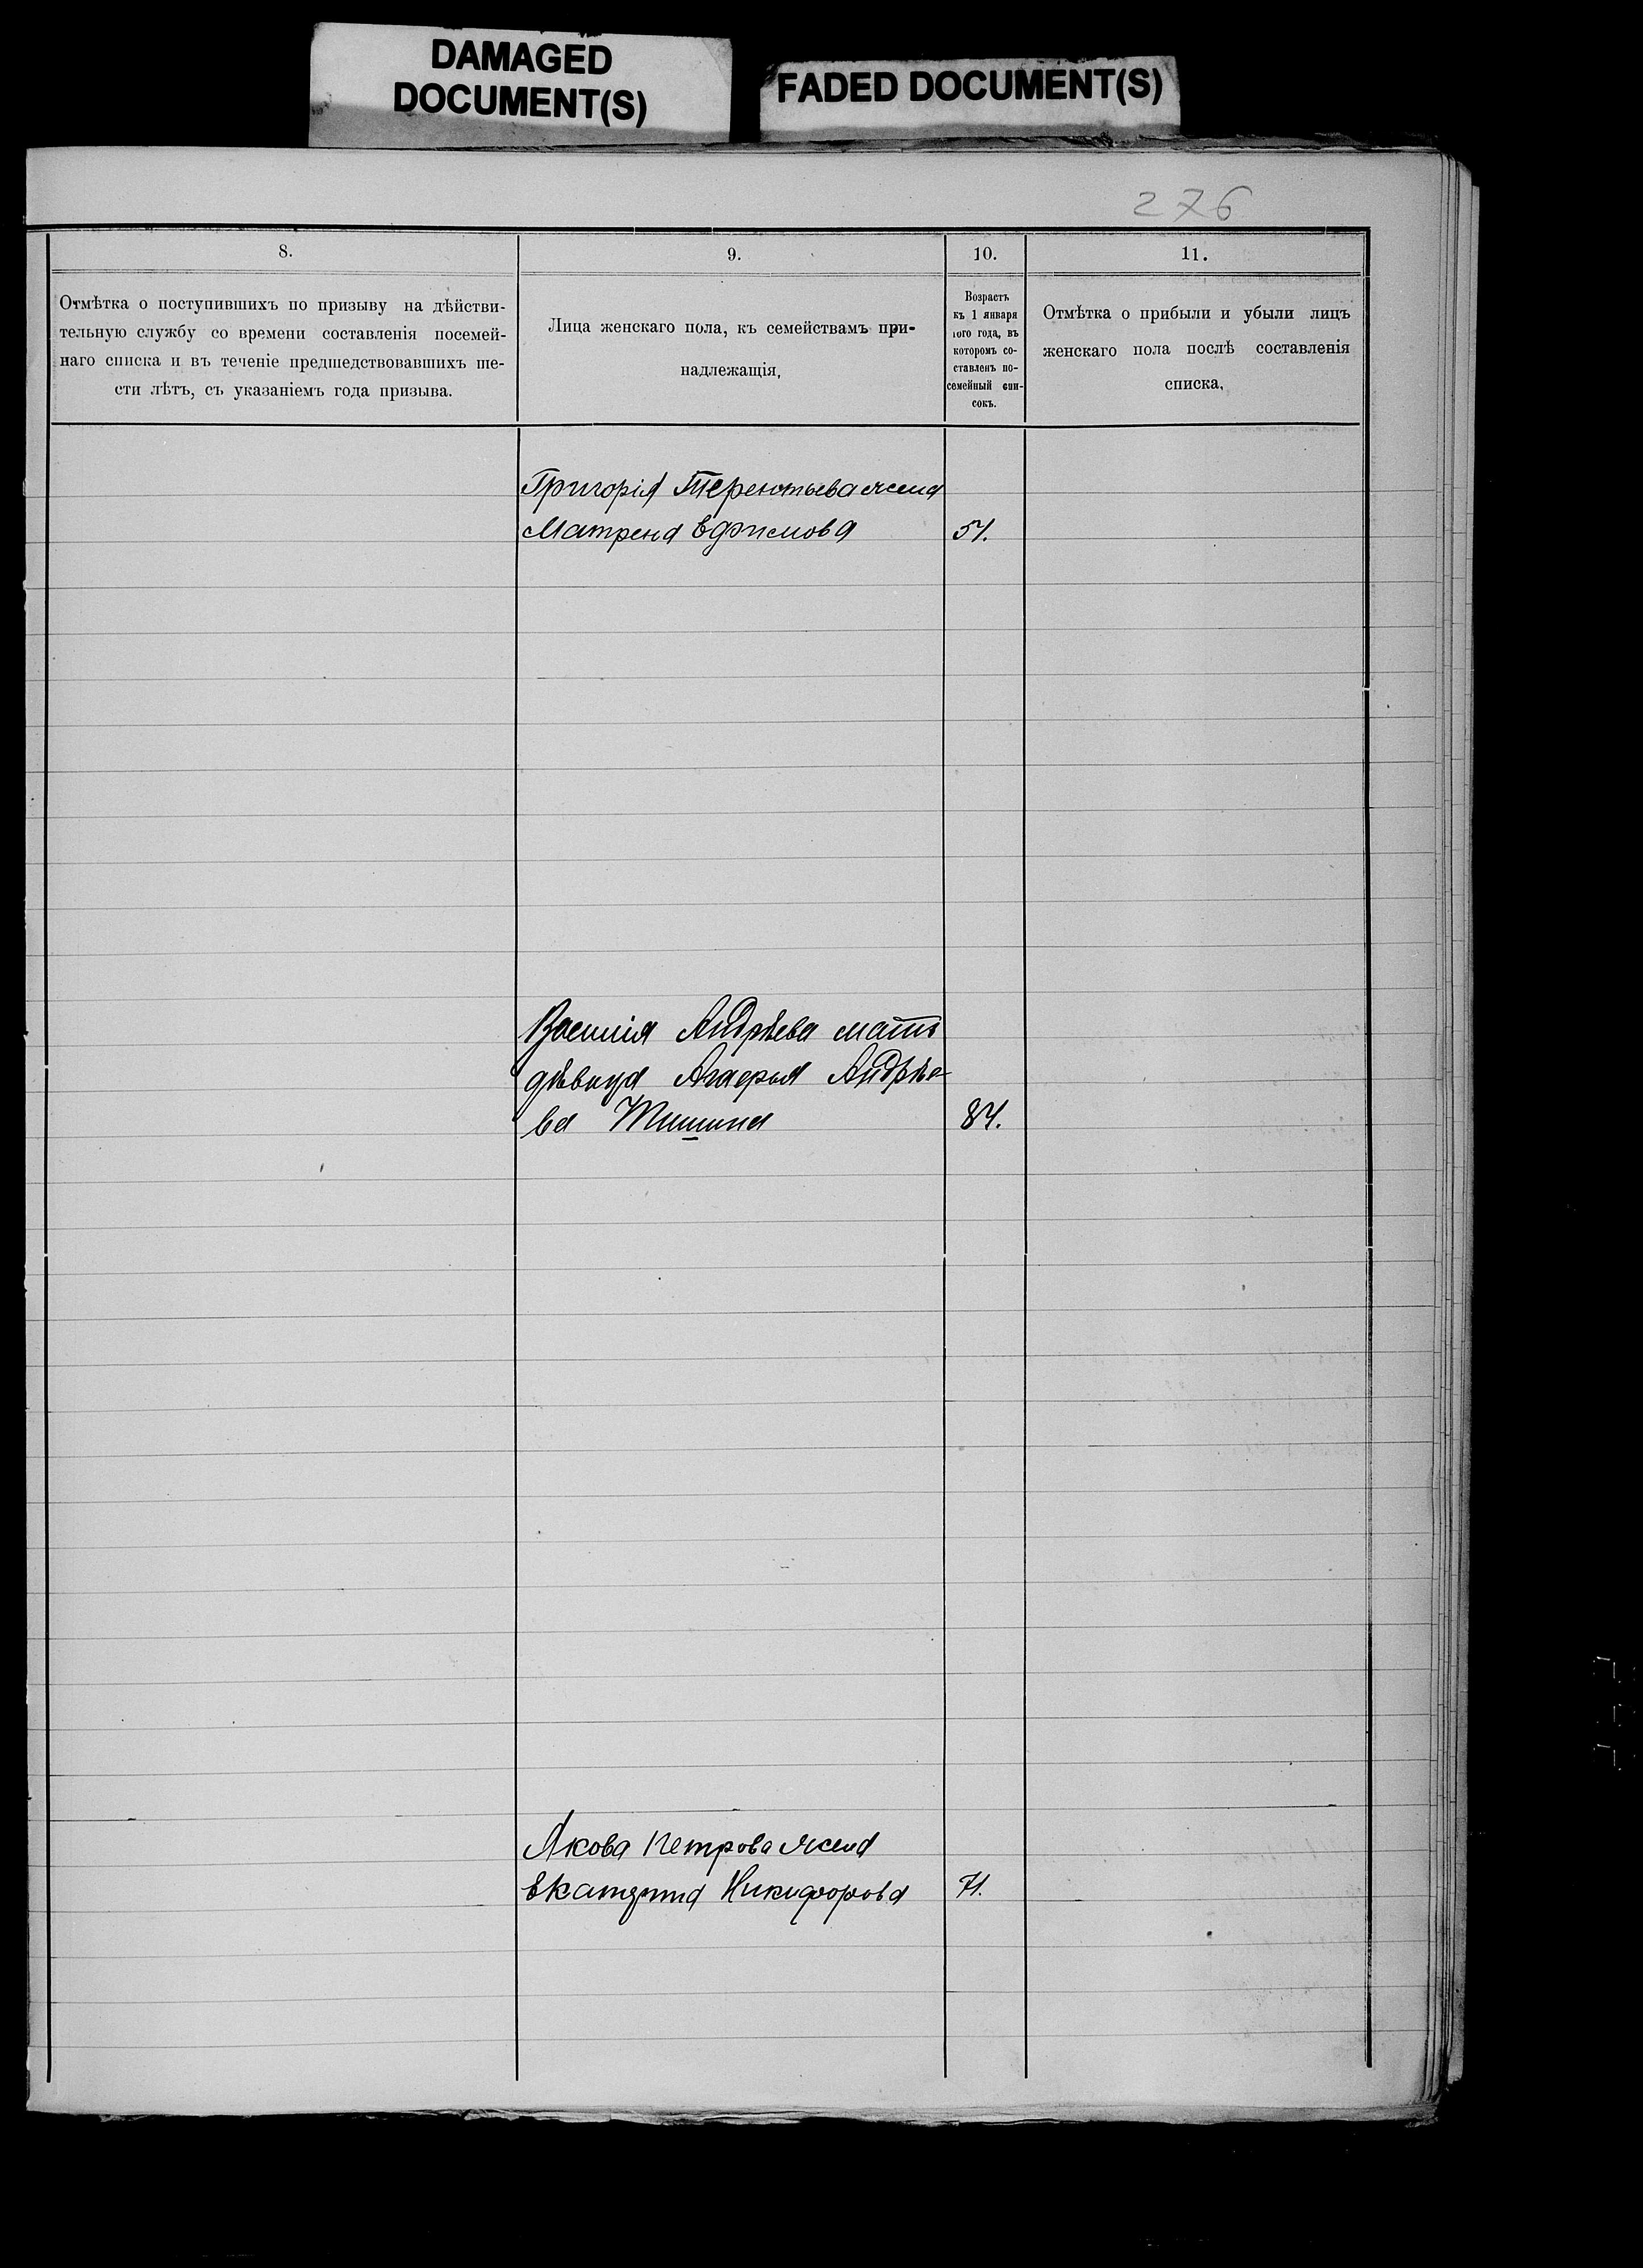 DAMAGED
DOCUMENT(S)
FADED DOCUMENT(S)
276
8.
Отмѣтка о поступившихъ по призыву на дѣйстви-
тельную службу со времени составленія посемей-
наго списка и въ теченіе предшедствовавшихъ ше-
сти лѣтъ, съ указаніемъ года призыва.
9.
Лица женскаго пола, къ семействамъ при-
надлежащія,
10.
Возрастъ
къ 1 января
того года, въ
которомъ со-
ставленъ по-
семейный спи-
сокъ.
11.
Отмѣтка о прибыли и убыли лицъ
женскаго пола послѣ составленія
списка,
Григорія Терентьева жена
Матрена Ефимова 51.
Андрѣева мать
дѣвица Андрѣе-
ва Тишина 84.
Якова Петрова жена
Екатерина Никифорова 71.